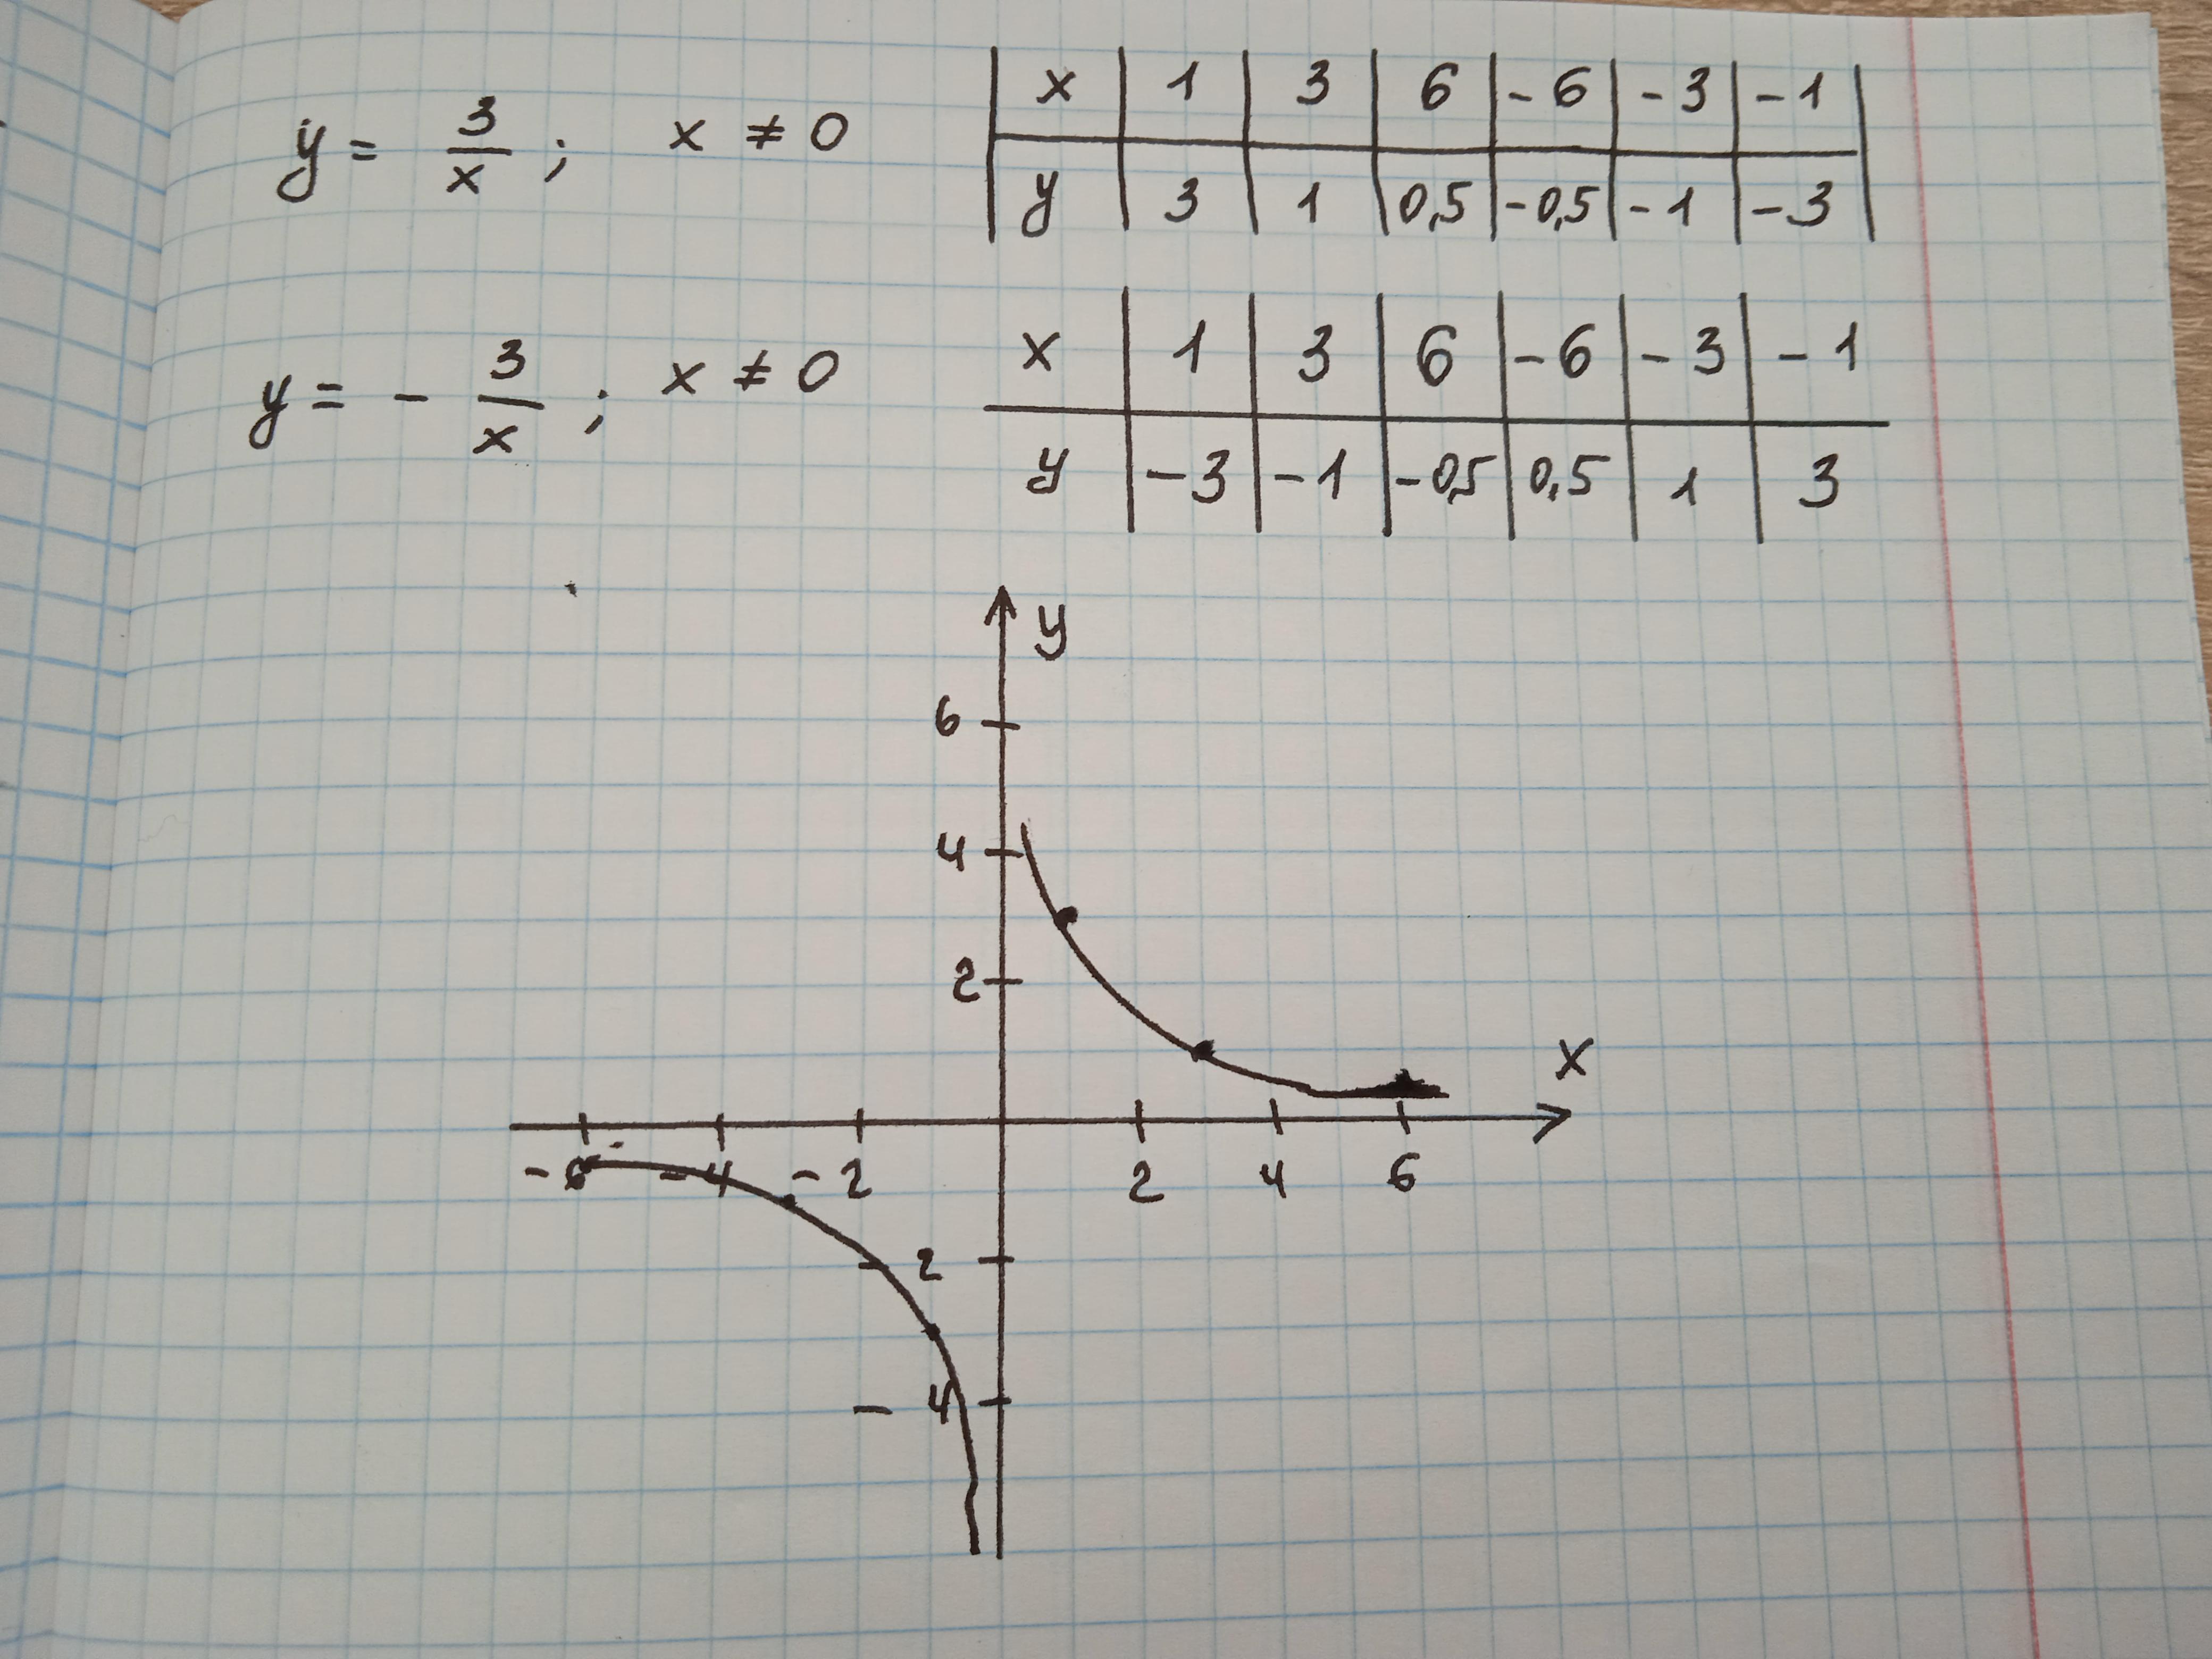 y = 3/x ; x ≠ 0
x | 1 | 3 | 6 | -6 | -3 | -1
y | 3 | 1 | 0,5 | -0,5 | -1 | -3
y = - 3/x ; x ≠ 0
x | 1 | 3 | 6 | -6 | -3 | -1
y | -3 | -1 | -0,5 | 0,5 | 1 | 3
y
6
4
2
x
-6 -4 -2 2 4 6
- 2
- 4